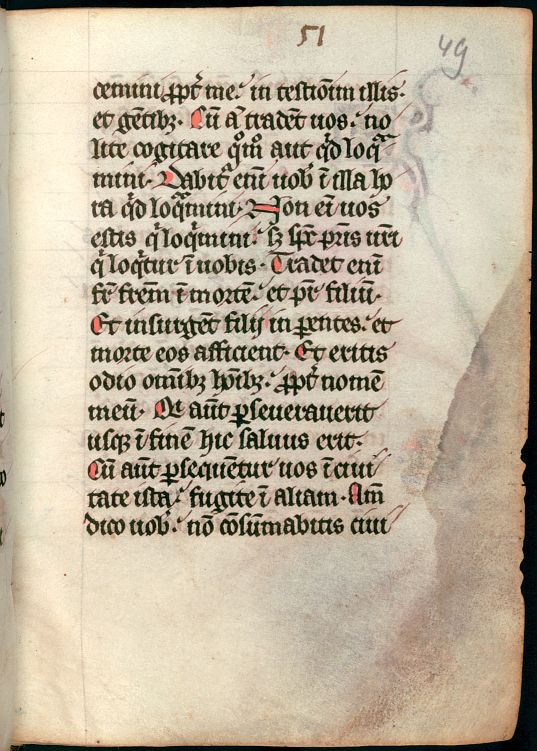 51
49
cemini ꝓpt̄ me. in testiōim illis.
et gētibꝫ. Cū aͭ tradēt uos. no
lite cogitare qͦmͦ aut qͥd loqͣ
mini. Dabitͬ enī uob̄ ī illa ho
ra qͥd loqͣmini. Non eī uos
estis qͥ loqͥmini. sꝫ sp̄c pr̄is ur̄i
qͥ loqͥtur ī uobis. Tradet enī
fr̄ fr̄em ī mortē. et pr̄ filiū.
Et insurgēt filij in ꝑentes. et
morte eos afficient. Et eritis
odio omībꝫ hōībꝫ. ꝓpt̄ nomē
meū. Qͥ aūt ꝑseuerauerit
usqꝫ ī finē hic saluus erit.
Cū aūt ꝑsequētur uos ī ciui
tate ista. fugite ī aliam. Am̄
dico uob̄. nō cōsūmabitis ciui